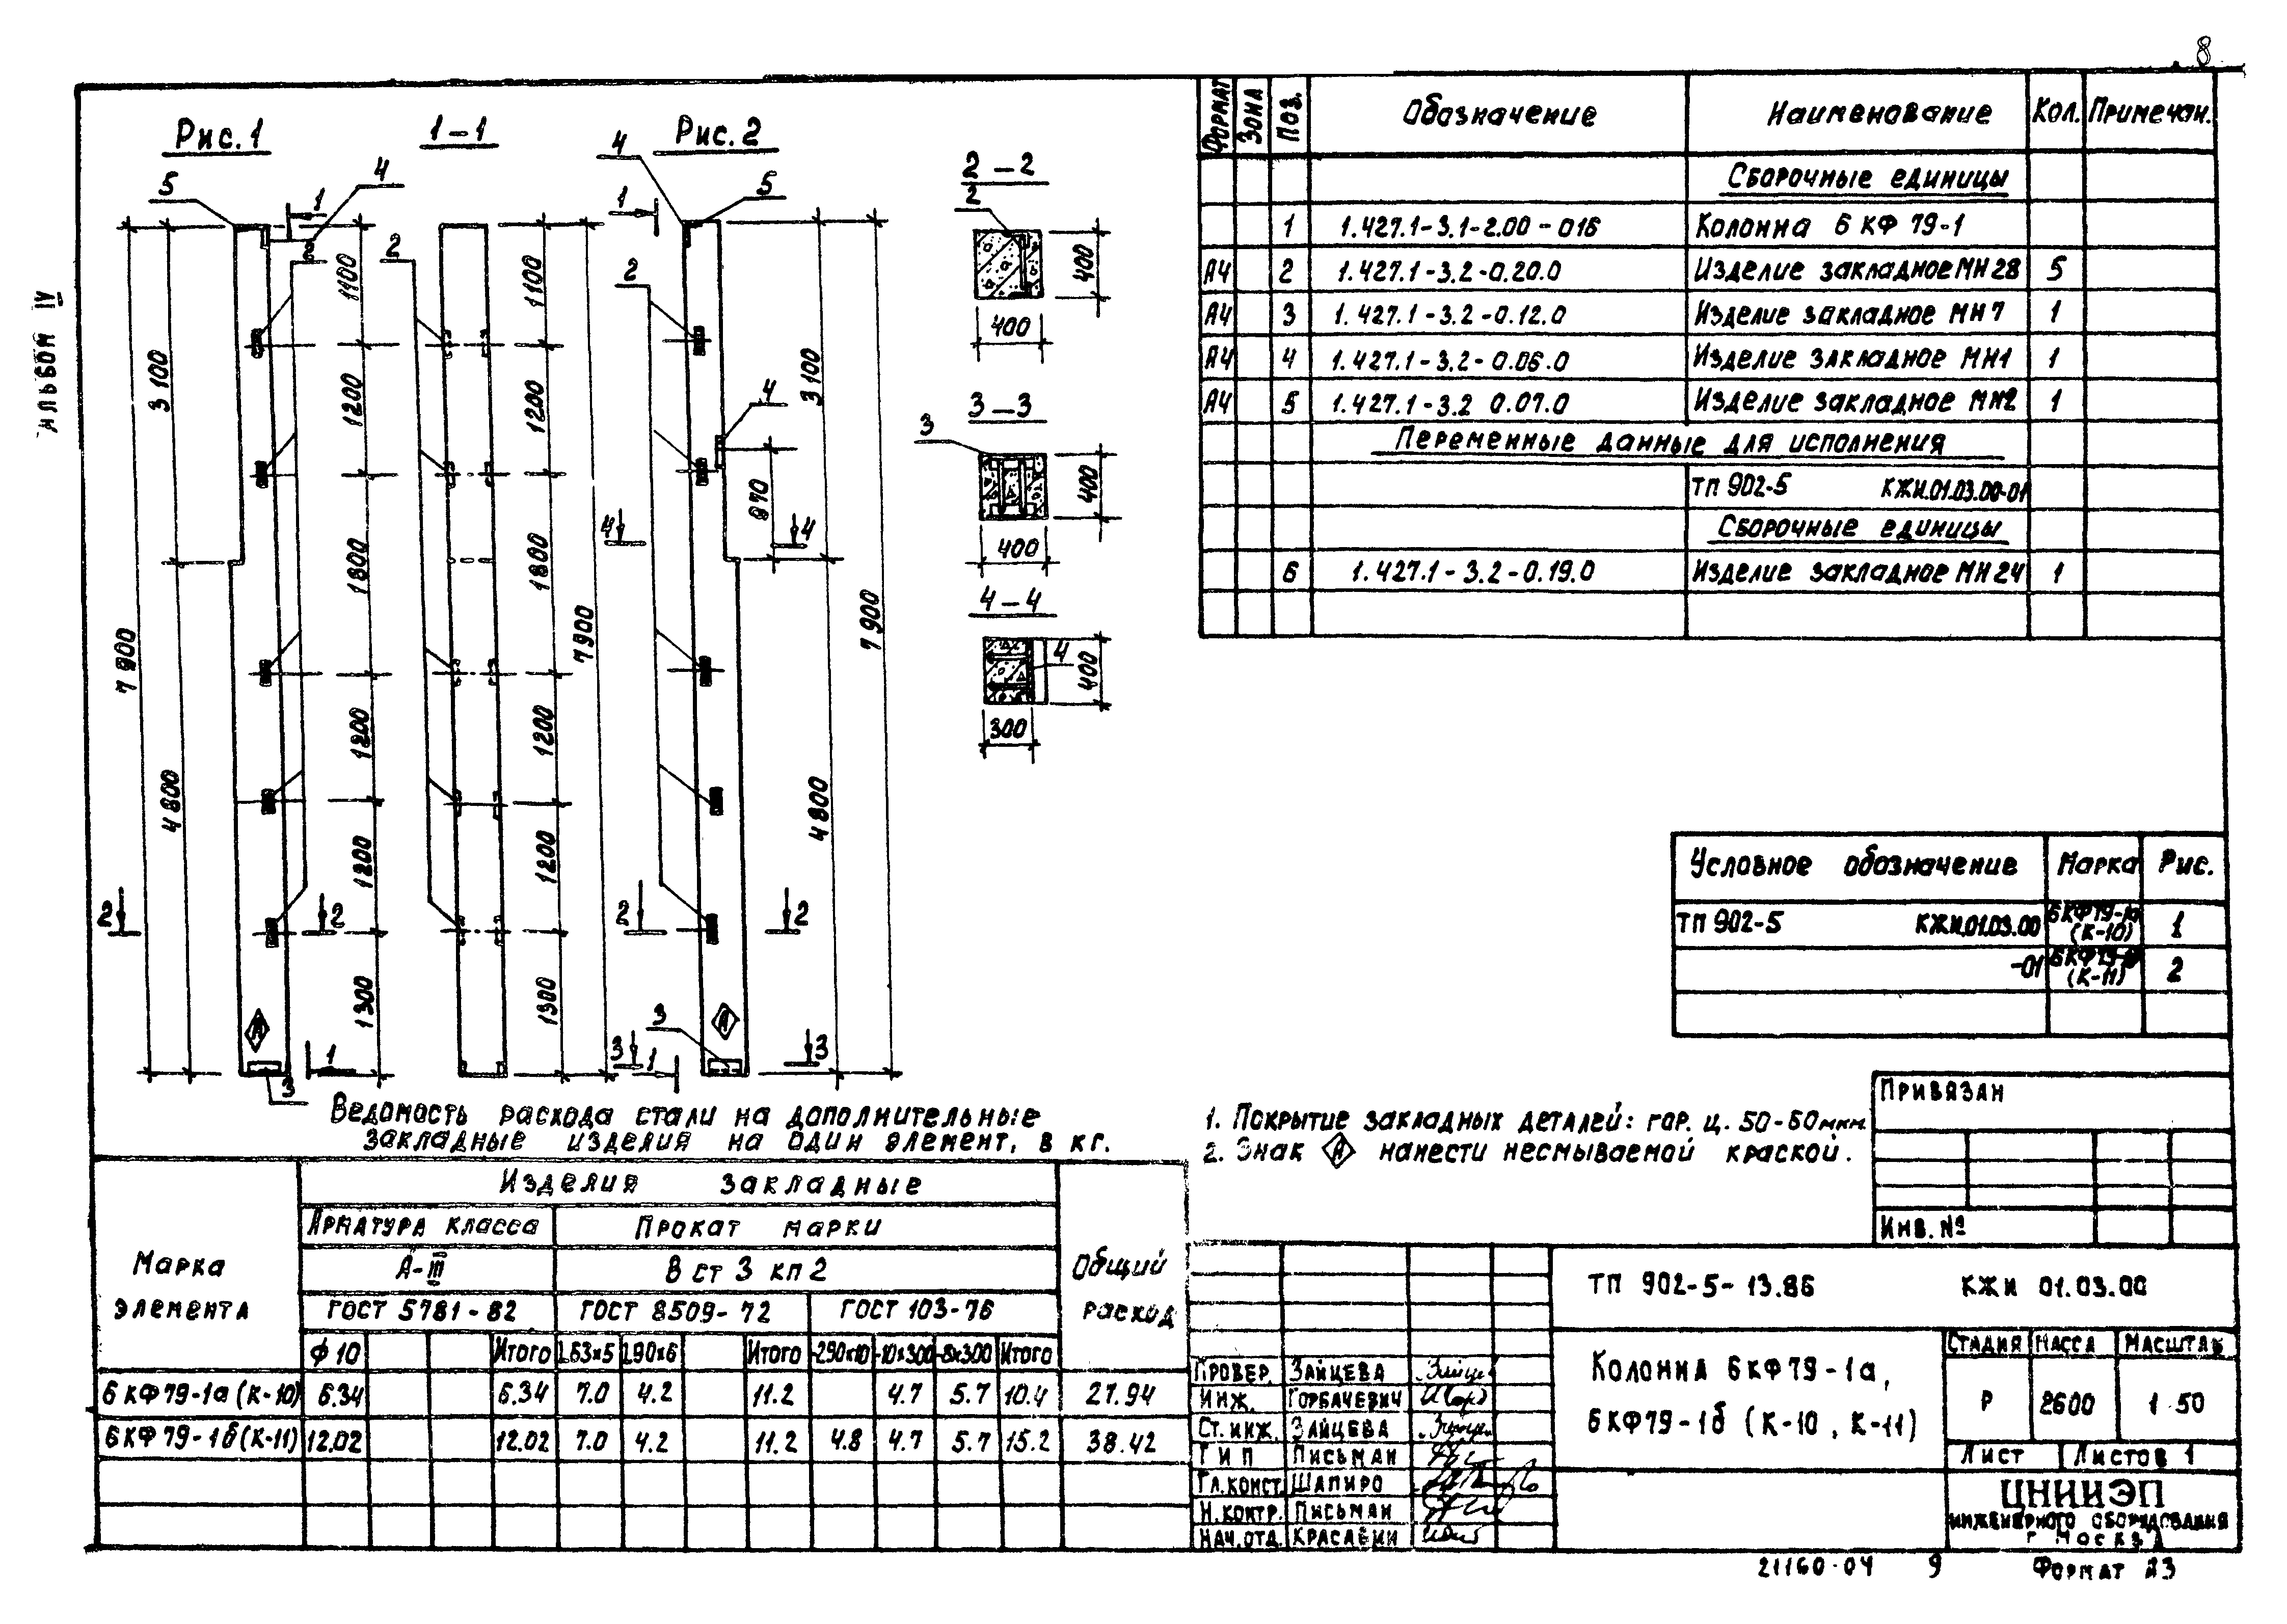 8
Альбом IV
Рис. 1
1-1
Рис. 2
5
4
1
2
3100
7900
4800
1100
1200
1800
1200
1200
1300
2
2
А
3
1
2
1100
1200
1800
1200
1200
1300
7900
4
5
1
2
4
3100
870
4
4
7900
4800
2
2
А
3
3
3
1
2-2
2
400
400
3-3
3
400
400
4-4
4
400
300
Формат
Зона
Поз.
Обозначение
Наименование
Кол.
Примечан.
Сборочные единицы
1 1.427.1-3.1-2.00-016 Колонна 6 КФ 79-1
А4 2 1.427.1-3.2-0.20.0 Изделие закладное МН 28 5
А4 3 1.427.1-3.2-0.12.0 Изделие закладное МН 7 1
А4 4 1.427.1-3.2-0.06.0 Изделие закладное МН1 1
А4 5 1.427.1-3.2 0.07.0 Изделие закладное МН2 1
Переменные данные для исполнения
ТП 902-5 КЖИ.01.03.00-01
Сборочные единицы
6 1.427.1-3.2-0.19.0 Изделие закладное МН 24 1
Условное обозначение Марка Рис.
ТП 902-5 КЖИ.01.03.00 6КФ79-1а (К-10) 1
-01 (К-11) 2
1. Покрытие закладных деталей: гор. ц. 50-60 мкм
2. Знак А нанести несмываемой краской.
Привязан
Инв. №
Ведомость расхода стали на дополнительные
закладные изделия на один элемент, в кг.
Марка элемента
Изделия закладные
Общий расход
Арматура класса
Прокат марки
А-III
В ст 3 кп 2
ГОСТ 5781-82
ГОСТ 8509-72
ГОСТ 103-76
ф 10 Итого L63х5 L90х6 Итого -290х10 -10х300 -8х300 Итого
6 КФ 79-1а (К-10) 6.34 6.34 7.0 4.2 11.2 4.7 5.7 10.4 27.94
6 КФ 79-1б (К-11) 12.02 12.02 7.0 4.2 11.2 4.8 4.7 5.7 15.2 38.42
ТП 902-5-13.86 КЖИ 01.03.00
Провер. Зайцева
Инж. Горбачевич
Ст. инж. Зайцева
ГИП Письман
Гл. конст. Шапиро
Н. контр. Письман
Нач. отд. Красавин
Колонна 6КФ79-1а,
6КФ79-1б (К-10, К-11)
Стадия Масса Масштаб
Р 2600 1 50
Лист Листов 1
ЦНИИЭП
инженерного оборудования
г Москва
21160-04 9 Формат А3